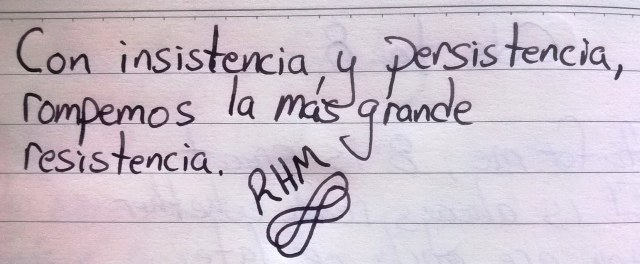 Con insistencia y persistencia,
rompemos la más grande
resistencia.
RHM